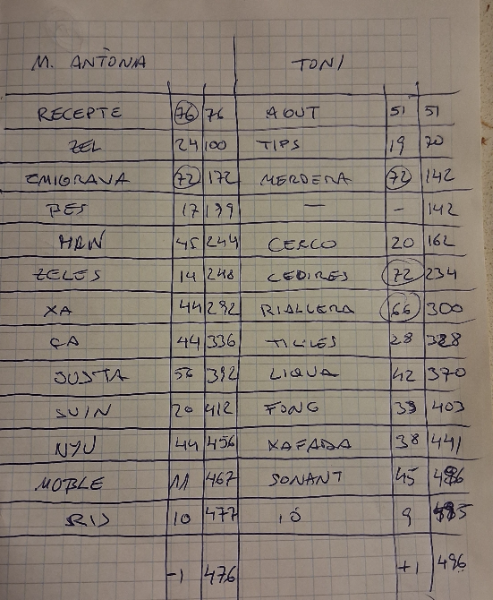 M. ANTÒNIA TONI
RECEPTE 76 76 AGUT 51 51
ZEL 24 100 TIPS 19 70
EMIGRAVA 72 172 MERDERA 72 142
PES 17 199 — - 142
MAN 45 244 CERCO 20 162
ZELES 14 248 CEDIRES 72 234
XA 44 292 RIALLERA 66 300
ÇA 44 336 28 328
JUSTA 56 392 LIQUA 42 370
SUIN 20 412 FONG 33 403
NYU 44 456 XAFADA 38 441
MOBLE 11 467 SONANT 45 486
RIS 10 477 IÓ 9
-1 476 +1 496